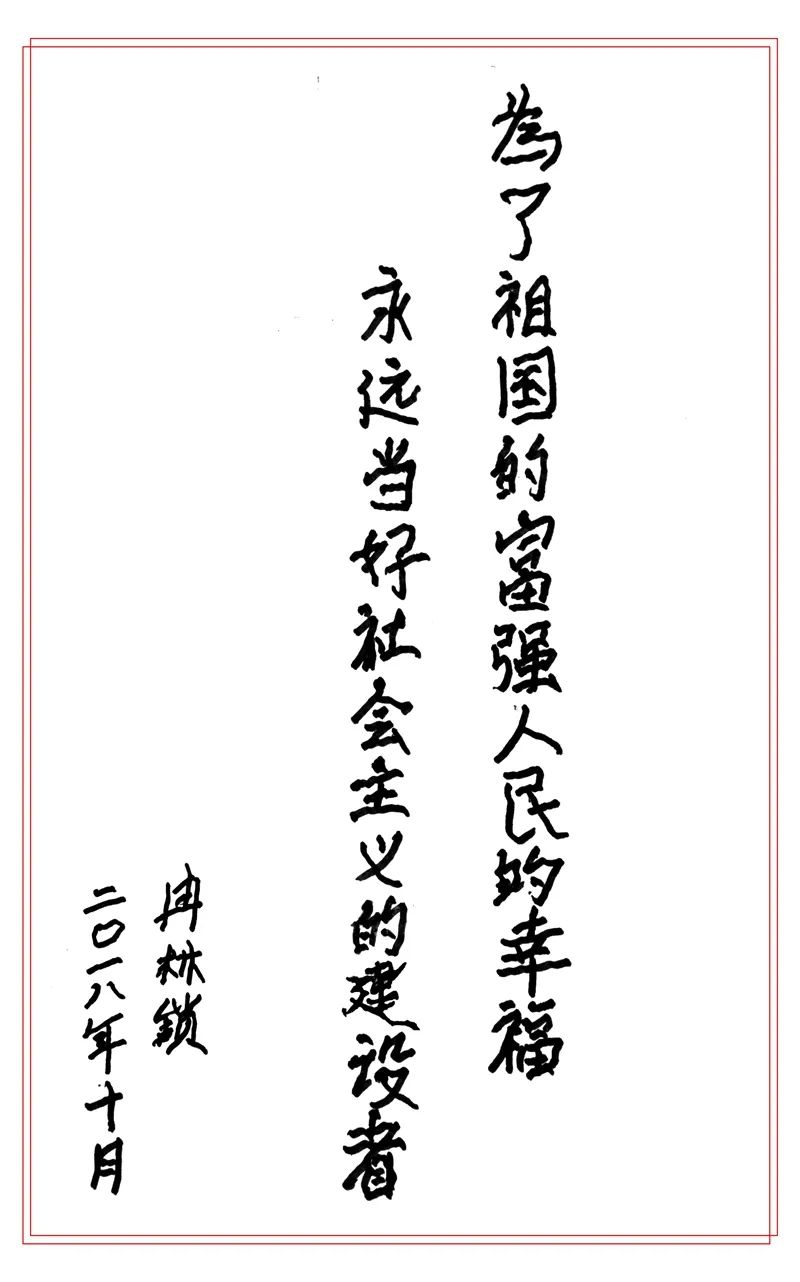 為了祖国的富强人民的幸福
永远当好社会主义的建设者
冉林鎖
二〇一八年十月